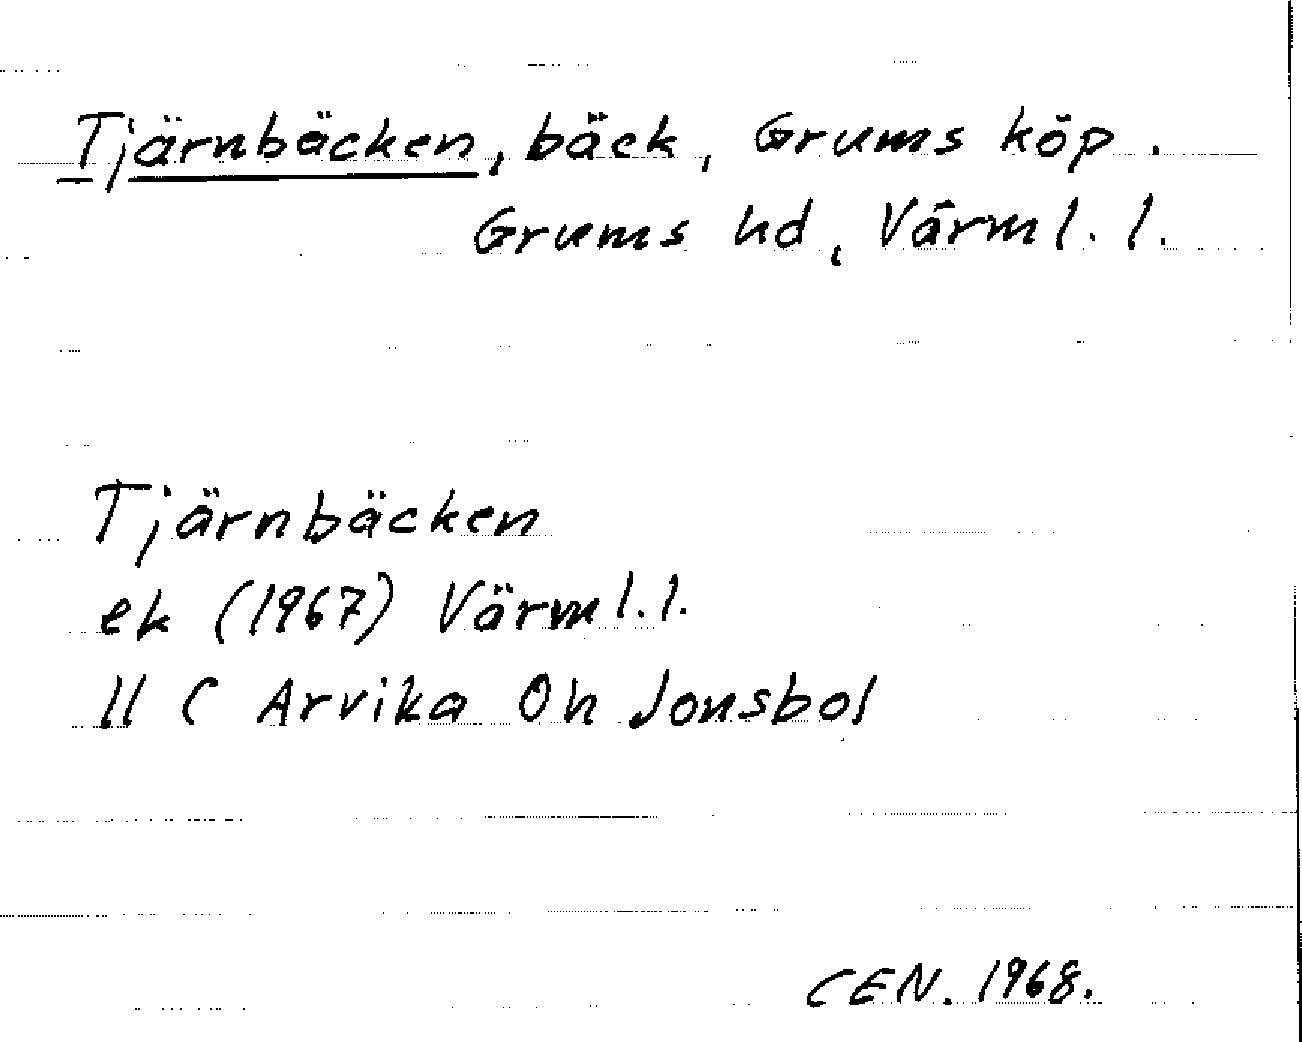 Tjärnbäcken, bäck, Grums köp.
Grums hd, Värml. l.
Tjärnbäcken
ek (1967) Värml. l.
11 C Arvika 0h Jonsbol
CEN. 1968.